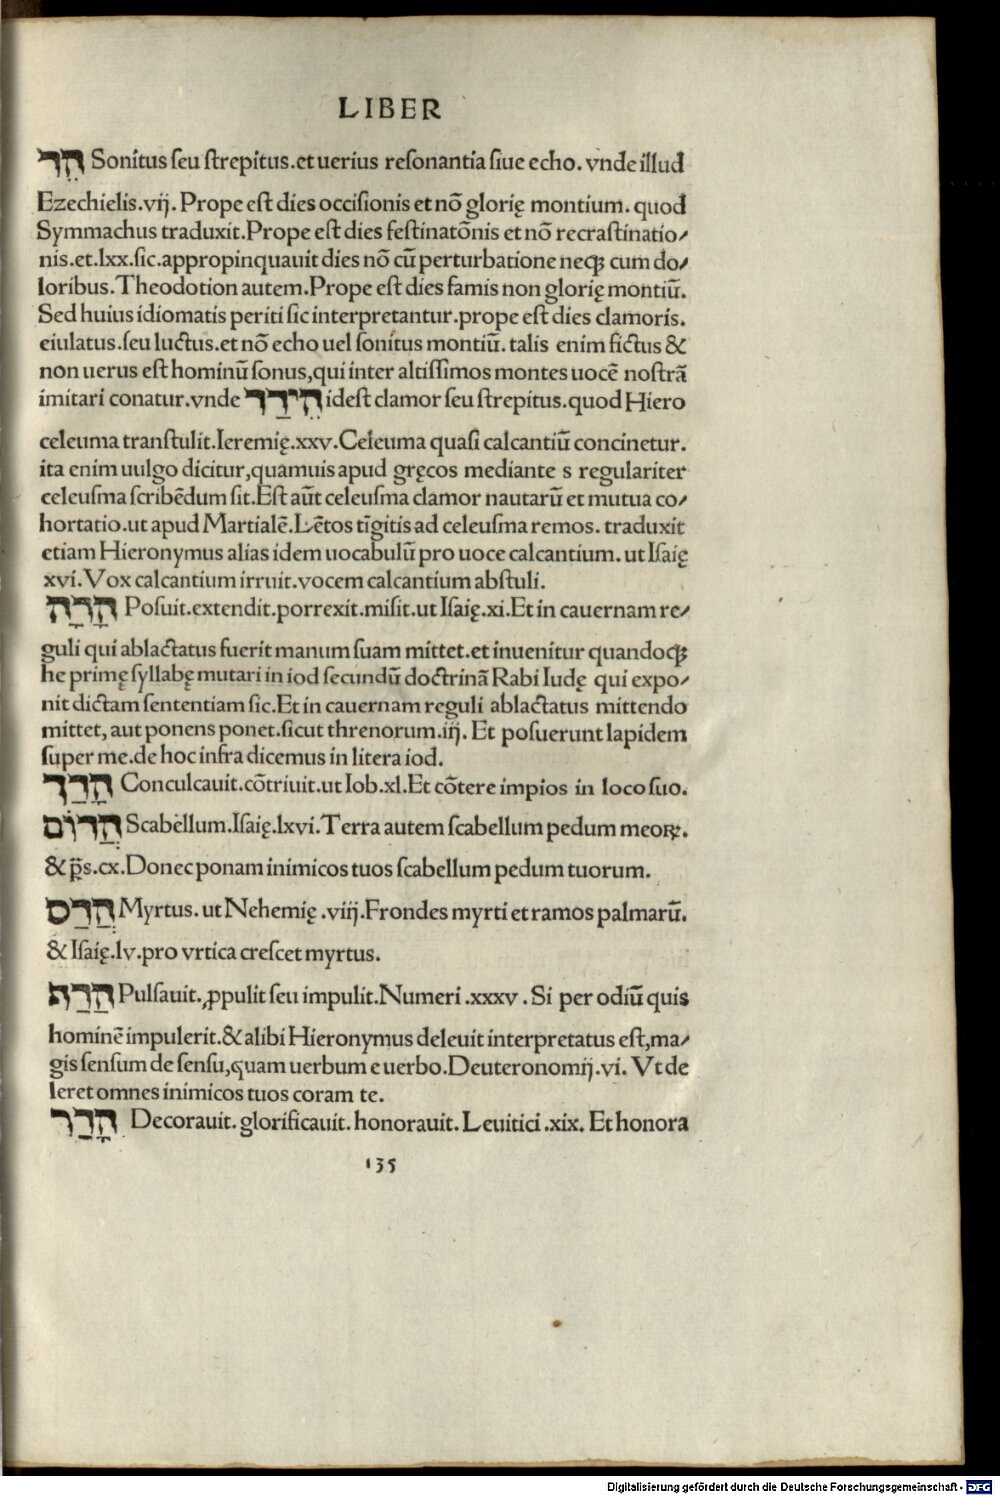 LIBER
הֵד Sonitus seu strepitus.et uerius resonantia siue echo. vnde illud
Ezechielis.vij. Prope est dies occisionis et nō glorię montium. quod
Symmachus traduxit.Prope est dies festinatōnis et nō recrastinatio⸗
nis.et.lxx.sic.appropinquauit dies nō cū perturbatione neqꝫ cum do⸗
loribus.Theodotion autem.Prope est dies famis non glorię montiū.
Sed huius idiomatis periti sic interpretantur.prope est dies clamoris.
eiulatus.seu luctus.et nō echo uel sonitus montiū. talis enim fictus &
non uerus est hominū sonus,qui inter altissimos montes uocē nostrā
imitari conatur.vnde הֵידַד idest clamor seu strepitus.quod Hiero
celeuma transtulit.Ieremię.xxv.Celeuma quasi calcantiū concinetur.
ita enim uulgo dicitur,quamuis apud gręcos mediante s regulariter
celeusma scribēdum sit.Est aūt celeusma clamor nautarū et mutua co⸗
hortatio.ut apud Martialē.Lētos tīgitis ad celeusma remos. traduxit
etiam Hieronymus alias idem uocabulū pro uoce calcantium. ut Isaię
xvi.Vox calcantium irruit.vocem calcantium abstuli.
הָדָה Posuit.extendit.porrexit.misit.ut Isaię.xi.Et in cauernam re⸗
guli qui ablactatus fuerit manum suam mittet.et inuenitur quandoqꝫ
he primę syllabę mutari in iod secundū doctrinā Rabi Iudę qui expo⸗
nit dictam sententiam sic.Et in cauernam reguli ablactatus mittendo
mittet, aut ponens ponet.sicut threnorum.iij. Et posuerunt lapidem
super me.de hoc infra dicemus in litera iod.
הָדַךְ Conculcauit.cōtriuit.ut Iob.xl.Et cōtere impios in loco suo.
הֲדוֹם Scabellum.Isaię.lxvi.Terra autem scabellum pedum meoꝝ.
& p̄s.cx.Donec ponam inimicos tuos scabellum pedum tuorum.
הֲדַס Myrtus. ut Nehemię .viij.Frondes myrti et ramos palmarū.
& Isaię.lv.pro vrtica crescet myrtus.
הֲדַף Pulsauit.ꝓpulit seu impulit.Numeri .xxxv . Si per odiū quis
hominē impulerit.& alibi Hieronymus deleuit interpretatus est,ma⸗
gis sensum de sensu,quam uerbum e uerbo.Deuteronomij.vi. Vt de
leret omnes inimicos tuos coram te.
הָדַר Decorauit. glorificauit. honorauit. Leuitici .xix. Et honora
135
Digitalisierung gefördert durch die Deutsche Forschungsgemeinschaft - DFG